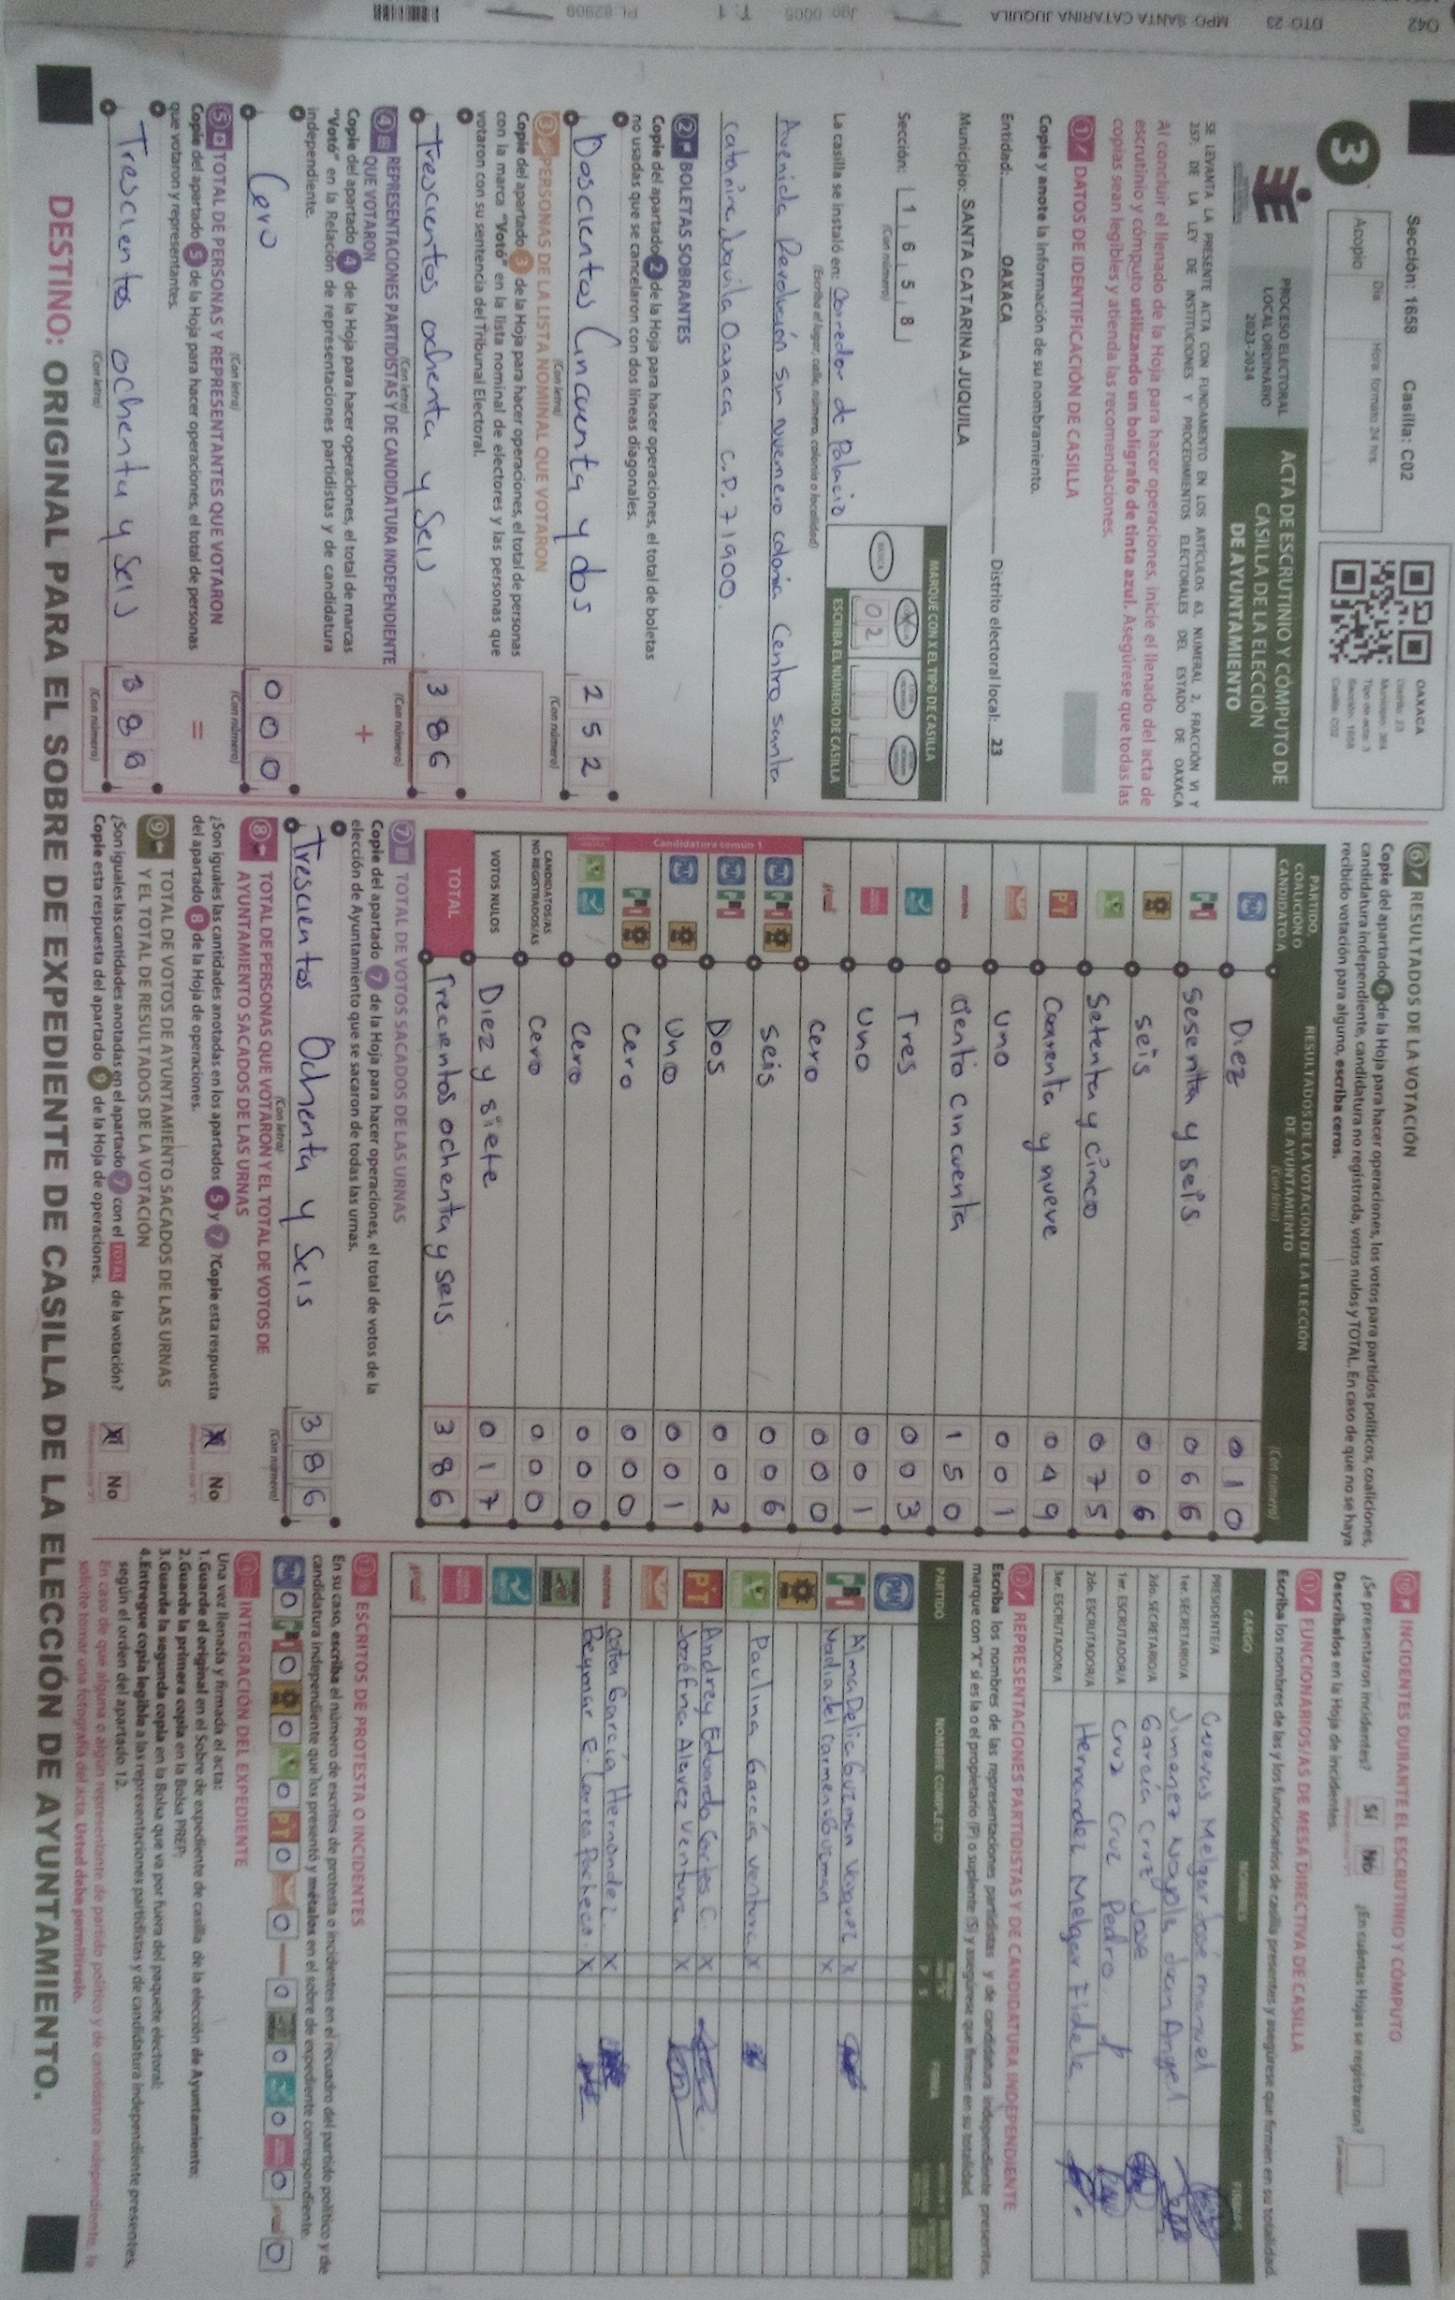 042 DTO 23 MPO SANTA CATARINA JUQUILA
Sección: 1658 Casilla: C02
3
Día Hora: formato 24 hrs
Acopio
OAXACA
Sección: 1658
Casilla: C02
PROCESO ELECTORAL
LOCAL ORDINARIO
2023-2024
ACTA DE ESCRUTINIO Y CÓMPUTO DE
CASILLA DE LA ELECCIÓN
DE AYUNTAMIENTO
SE LEVANTA LA PRESENTE ACTA CON FUNDAMENTO EN LOS ARTÍCULOS 63, NUMERAL 2, FRACCIÓN VI Y
257, DE LA LEY DE INSTITUCIONES Y PROCEDIMIENTOS ELECTORALES DEL ESTADO DE OAXACA
Al concluir el llenado de la Hoja para hacer operaciones, inicie el llenado del acta de
escrutinio y cómputo utilizando un bolígrafo de tinta azul. Asegúrese que todas las
copias sean legibles y atienda las recomendaciones.
1 DATOS DE IDENTIFICACIÓN DE CASILLA
Copie y anote la información de su nombramiento.
Entidad: OAXACA Distrito electoral local: 23
Municipio: SANTA CATARINA JUQUILA
Sección: 1 6 5 8
(Con número)
MARQUE CON X EL TIPO DE CASILLA
02
ESCRIBA EL NÚMERO DE CASILLA
La casilla se instaló en: Corredor de Palacio
(Escriba el lugar, calle, número, colonia o localidad)
Avenida Revolución sin nuemero colonia Centro santa
catarina, Juquila Oaxaca. C.P. 71900.
2 BOLETAS SOBRANTES
Copie del apartado 2 de la Hoja para hacer operaciones, el total de boletas
no usadas que se cancelaron con dos líneas diagonales.
Doscientos Cincuenta y dos 2 5 2
(Con letra) (Con número)
3 PERSONAS DE LA LISTA NOMINAL QUE VOTARON
Copie del apartado 3 de la Hoja para hacer operaciones, el total de personas
con la marca "Votó" en la lista nominal de electores y las personas que
votaron con su sentencia del Tribunal Electoral.
Trescientos ochenta y Seis 3 8 6
(Con letra) (Con número)
4 REPRESENTACIONES PARTIDISTAS Y DE CANDIDATURA INDEPENDIENTE
QUE VOTARON
+
Copie del apartado 4 de la Hoja para hacer operaciones, el total de marcas
"Votó" en la Relación de representaciones partidistas y de candidatura
independiente.
Cero 0 0 0
(Con letra) (Con número)
5 TOTAL DE PERSONAS Y REPRESENTANTES QUE VOTARON
=
Copie del apartado 5 de la Hoja para hacer operaciones, el total de personas
que votaron y representantes.
Trescientos ochenta y Seis 3 8 6
(Con letra) (Con número)
6 RESULTADOS DE LA VOTACIÓN
Copie del apartado 6 de la Hoja para hacer operaciones, los votos para partidos políticos, coaliciones,
candidatura independiente, candidatura no registrada, votos nulos y TOTAL. En caso de que no se haya
recibido votación para alguno, escriba ceros.
PARTIDO, COALICIÓN O CANDIDATO/A
RESULTADOS DE LA VOTACIÓN DE LA ELECCIÓN
DE AYUNTAMIENTO
(Con letra) (Con número)
PAN Diez 0 1 0
PRI Sesenta y seis 0 6 6
seis 0 0 6
Setenta y cinco 0 7 5
PT Cuarenta y nueve 0 4 9
uno 0 0 1
morena ciento cincuenta 1 5 0
Tres 0 0 3
uno 0 0 1
cero 0 0 0
Candidatura común 1
seis 0 0 6
Dos 0 0 2
uno 0 0 1
cero 0 0 0
cero 0 0 0
CANDIDATOS/AS NO REGISTRADOS/AS cero 0 0 0
VOTOS NULOS Diez y siete 0 1 7
TOTAL Trecentos ochenta y seis 3 8 6
7 TOTAL DE VOTOS SACADOS DE LAS URNAS
Copie del apartado 7 de la Hoja para hacer operaciones, el total de votos de la
elección de Ayuntamiento que se sacaron de todas las urnas.
Trescientos Ochenta y Seis 3 8 6
(Con letra) (Con número)
8 TOTAL DE PERSONAS QUE VOTARON Y EL TOTAL DE VOTOS DE
AYUNTAMIENTO SACADOS DE LAS URNAS
¿Son iguales las cantidades anotadas en los apartados 5 y 7? Copie esta respuesta
del apartado 8 de la Hoja de operaciones.
Sí No
9 TOTAL DE VOTOS DE AYUNTAMIENTO SACADOS DE LAS URNAS
Y EL TOTAL DE RESULTADOS DE LA VOTACIÓN
¿Son iguales las cantidades anotadas en el apartado 7 con el TOTAL de la votación?
Copie esta respuesta del apartado 9 de la Hoja de operaciones.
Sí No
10 INCIDENTES DURANTE EL ESCRUTINIO Y CÓMPUTO
¿Se presentaron incidentes? Sí No ¿En cuántas Hojas se registraron?
Descríbalos en la Hoja de incidentes.
11 FUNCIONARIOS/AS DE MESA DIRECTIVA DE CASILLA
Escriba los nombres de las y los funcionarios de casilla presentes y asegúrese que firmen en su totalidad.
CARGO NOMBRES FIRMAS
PRESIDENTE/A Cuevas Melgar José manuel
1er. SECRETARIO/A Jimenez Nayola Juan Angel
2do. SECRETARIO/A García Cruz Jose
1er. ESCRUTADOR/A Cruz Cruz Pedro
2do. ESCRUTADOR/A Hernandez Melgar Fidele
3er. ESCRUTADOR/A
12 REPRESENTACIONES PARTIDISTAS Y DE CANDIDATURA INDEPENDIENTE
Escriba los nombres de las representaciones partidistas y de candidatura independiente presentes,
marque con "X" si es la o el propietario (P) o suplente (S) y asegúrese que firmen en su totalidad.
PARTIDO NOMBRE COMPLETO P S FIRMA
PAN
PRI Alma Delia Guzman Vasquez X
Nadia del Carmen Guzman X
Paulina García Ventura X
PT Andrey Eduardo Cortes C X
Josefina Alavez Ventura X
morena García Hernandez X
Reymar E. Larrea Pacheco X
13 ESCRITOS DE PROTESTA O INCIDENTES
En su caso, escriba el número de escritos de protesta o incidentes en el recuadro del partido político y de
candidatura independiente que los presentó y métalos en el sobre de expediente correspondiente.
PAN 0 PRI 0 0 0 PT 0 0 0 0 0 0 0
INTEGRACIÓN DEL EXPEDIENTE
Una vez llenada y firmada el acta:
1. Guarde el original en el Sobre de expediente de casilla de la elección de Ayuntamiento;
2. Guarde la primera copia en la Bolsa PREP;
3. Guarde la segunda copia en la Bolsa que va por fuera del paquete electoral;
4. Entregue copia legible a las representaciones partidistas y de candidatura independiente presentes,
según el orden del apartado 12.
En caso de que alguna o algún representante de partido político y de candidatura independiente, le
solicite tomar una fotografía del acta. Usted debe permitírselo.
DESTINO: ORIGINAL PARA EL SOBRE DE EXPEDIENTE DE CASILLA DE LA ELECCIÓN DE AYUNTAMIENTO.